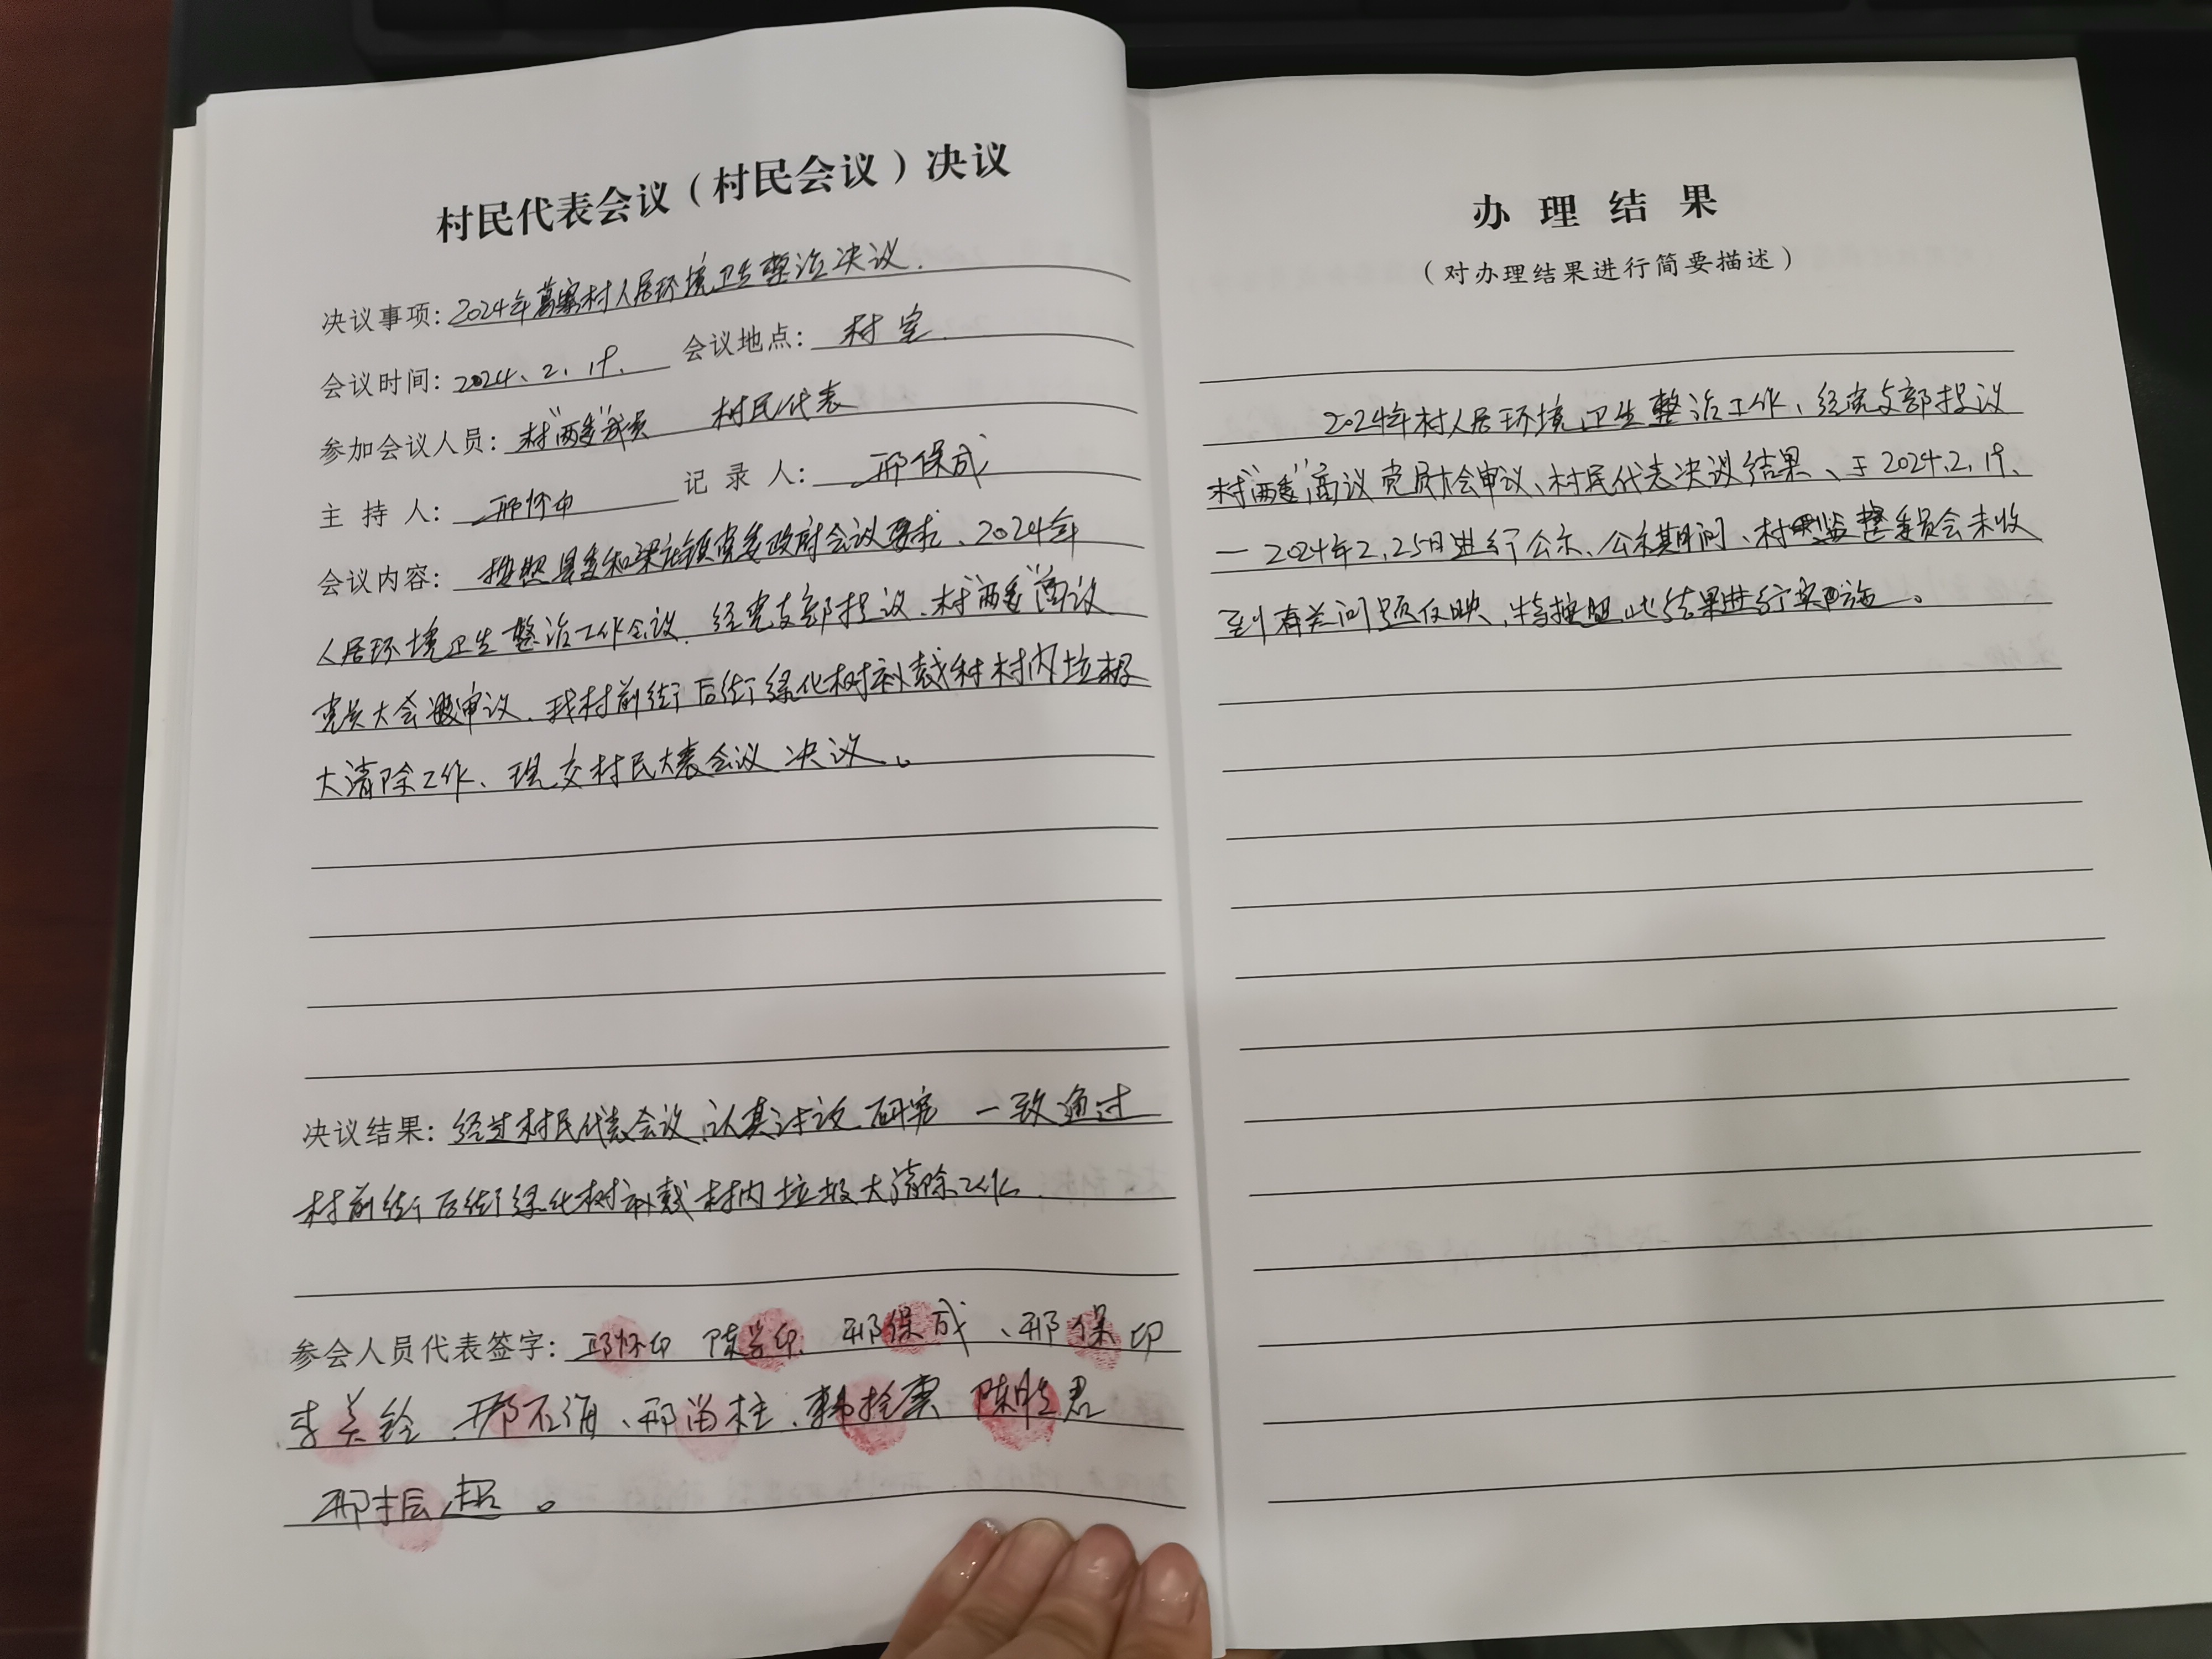 村民代表会议（村民会议）决议
决议事项：2024年葛寨村人居环境卫生整治决议.
会议时间：2024、2、19、 会议地点：村室.
参加会议人员：村"两委"成员 村民代表
主持人：邢怀印 记录人：邢保成
会议内容：按照县委和梁庄镇党委政府会议要求、2024年
人居环境卫生整治工作会议、经党支部提议、村"两委"商议
党员大会审议、我村前街后街绿化树补栽和村内垃圾
大清除工作、现交村民大表会议决议。
决议结果：经过村民代表会议、认真讨议、研究 一致通过
村前街后街绿化树补栽村内垃圾大清除工作.
参会人员代表签字：邢怀印 陈学印、邢保成、邢保印
李美玲、邢石海、邢留柱、韩拴票 陈胜君
邢振超。
办理结果
（对办理结果进行简要描述）
2024年村人居环境卫生整治工作、经党支部提议
村"两委"商议党员大会审议、村民代表决议结果、于2024.2.19、
一2024年2.25日进行公示、公示期间、村监委员会未收
到有关问题反映,将按照此结果进行实施。